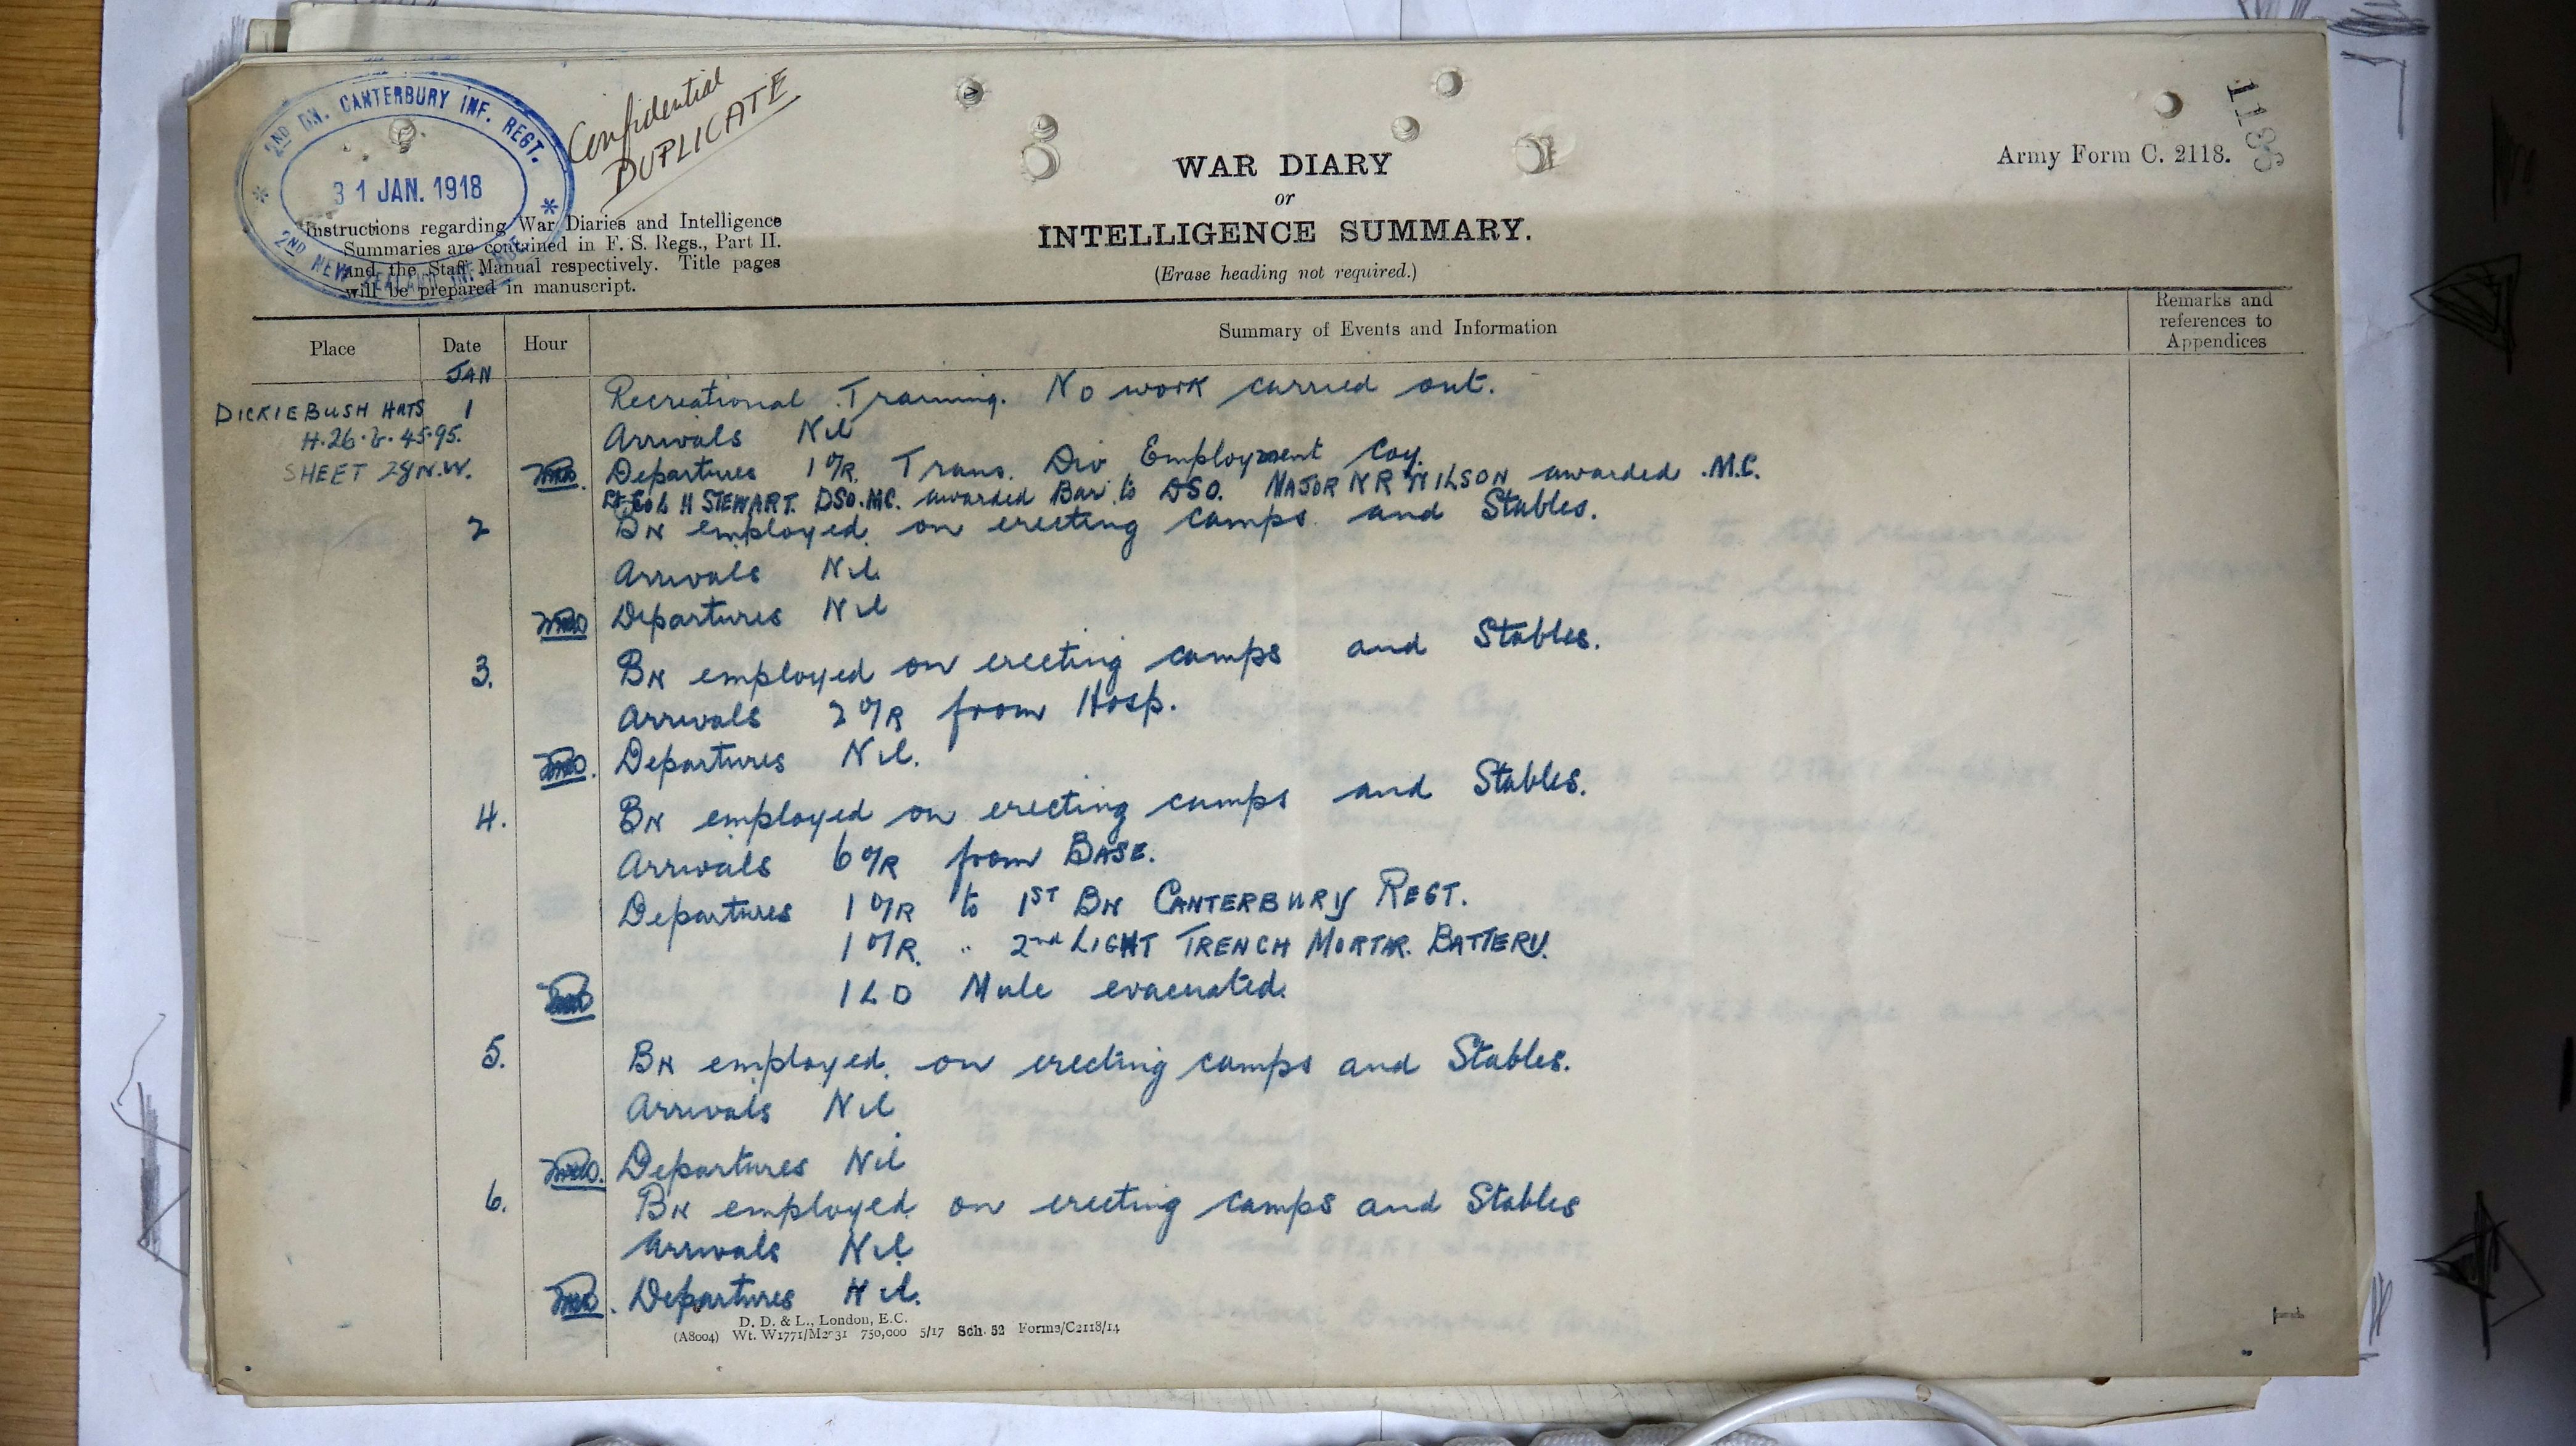 2ND BN. CANTERBURY INF. REGT.
31 JAN. 1918
2ND NEW ZEALAND INF. BDE
Confidential
DUPLICATE
1185
WAR DIARY
or
INTELLIGENCE SUMMARY.
(Erase heading not required.)
Army Form C. 2118.
Instructions regarding War Diaries and Intelligence
Summaries are contained in F. S. Regs., Part II.
and the Staff Manual respectively. Title pages
will be prepared in manuscript.
Place Date Hour Summary of Events and Information Remarks and references to Appendices
JAN
DICKIEBUSH HUTS 1 Recreational Training. No work carried out.
H.26.b.45.95. Arrivals Nil
SHEET 28 N.W. Departures 1 O/R. Trans. Div Employment Coy.
Lt Col H STEWART. DSO. MC. awarded Bar to DSO. MAJOR N R WILSON awarded .M.C.
2 BN employed on erecting camps and Stables.
Arrivals Nil.
Departures Nil
3. BN employed on erecting camps and Stables.
Arrivals 2 O/R from Hosp.
Departures Nil.
4. BN employed on erecting camps and Stables.
Arrivals 6 O/R from BASE.
Departures 1 O/R to 1ST BN CANTERBURY REGT.
1 O/R. " 2nd LIGHT TRENCH MORTAR. BATTERY.
1 L D Mule evacuated.
5. BN employed on erecting camps and Stables.
Arrivals Nil
Departures Nil
6. BN employed on erecting camps and Stables
Arrivals Nil
Departures Nil.
D. D. & L., London, E.C.
(A8004) Wt. W1771/M2731 750,000 5/17 Sch. 52 Forms/C2118/14
1